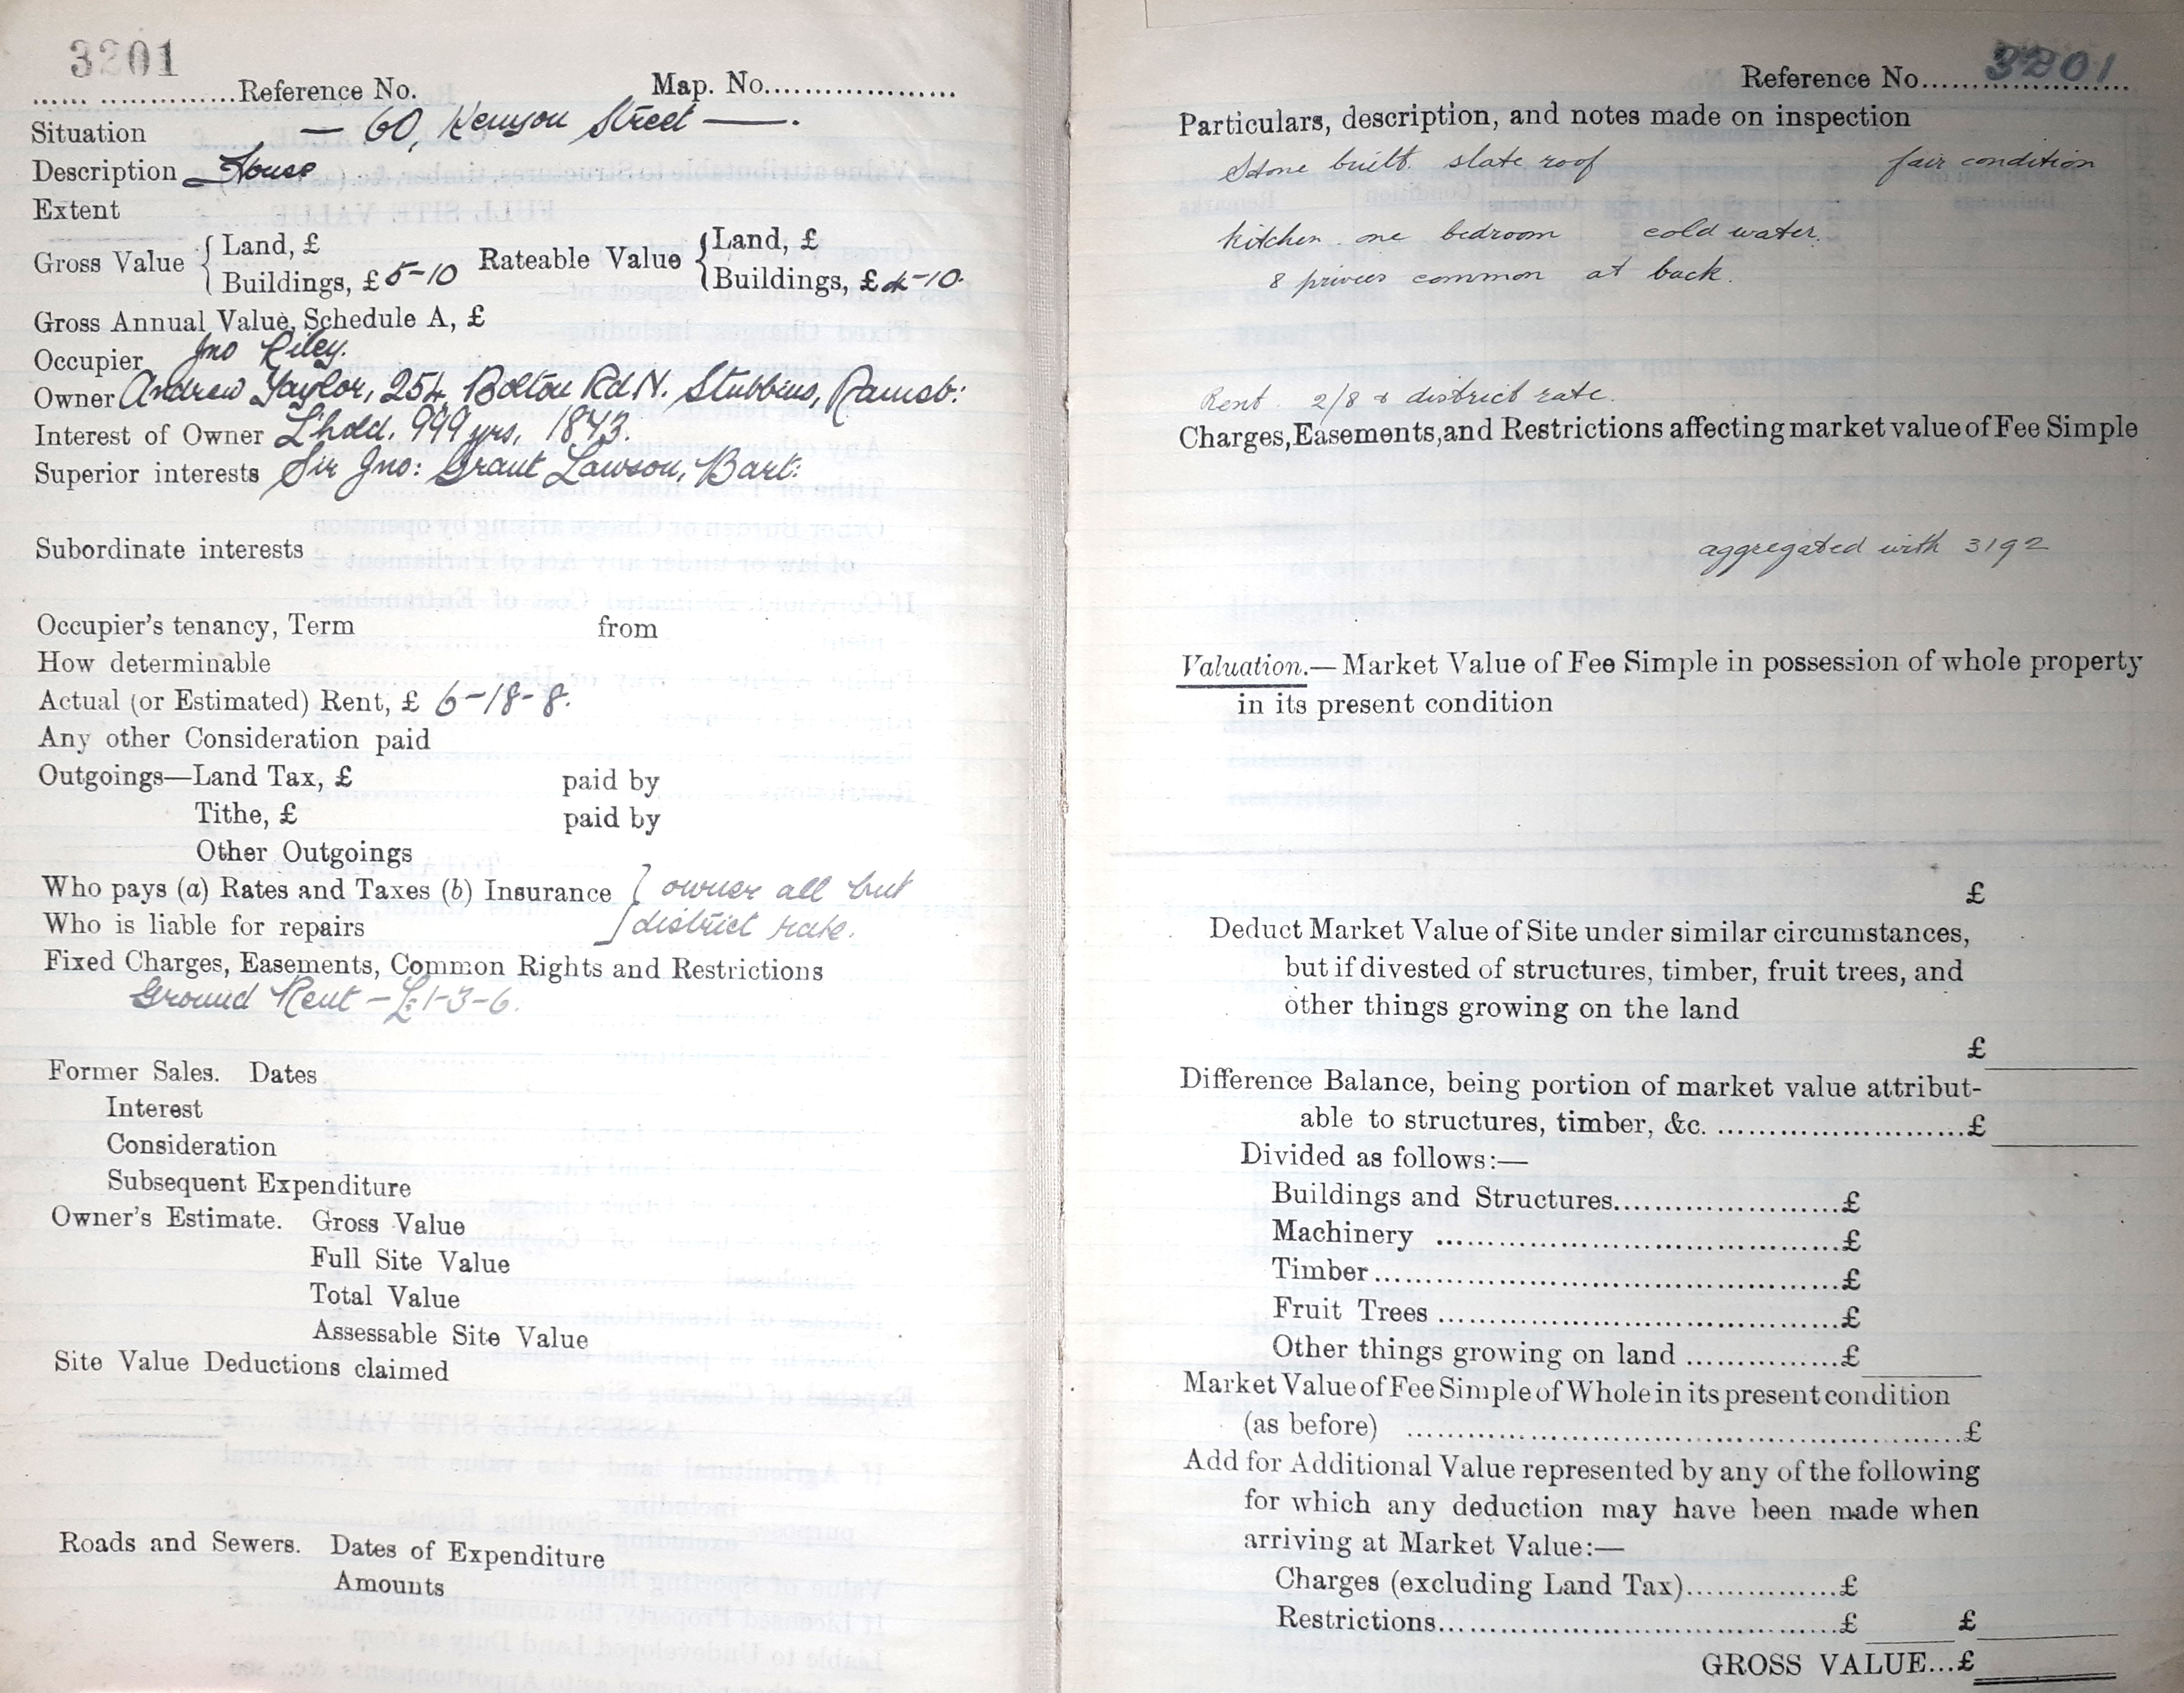 3201
...... ...............Reference No. Map. No....................
Situation — 60, Kenyon Street —.
Description House
Extent
Gross Value { Land, £ Rateable Value { Land, £
Buildings, £ 5-10 Buildings, £ 4-10.
Gross Annual Value, Schedule A, £
Occupier Jno Riley.
Owner Andrew Taylor, 254, Bolton Rd N. Stubbins, Ramsb:
Interest of Owner L'hold. 999 yrs, 1843.
Superior interests Sir Jno: Grant Lawson, Bart:
Subordinate interests
Occupier's tenancy, Term from
How determinable
Actual (or Estimated) Rent, £ 6-18-8.
Any other Consideration paid
Outgoings—Land Tax, £ paid by
Tithe, £ paid by
Other Outgoings
Who pays (a) Rates and Taxes (b) Insurance } owner all but
Who is liable for repairs district rate.
Fixed Charges, Easements, Common Rights and Restrictions
Ground Rent - £1-3-6.
Former Sales. Dates
Interest
Consideration
Subsequent Expenditure
Owner's Estimate. Gross Value
Full Site Value
Total Value
Assessable Site Value
Site Value Deductions claimed
Roads and Sewers. Dates of Expenditure
Amounts
Reference No..... 3201
Particulars, description, and notes made on inspection
Stone built. slate roof fair condition
kitchen. one bedroom cold water.
8 privies common at back.
Rent. 2/8 & district rate.
Charges, Easements, and Restrictions affecting market value of Fee Simple
aggregated with 3192
Valuation.—Market Value of Fee Simple in possession of whole property
in its present condition
£
Deduct Market Value of Site under similar circumstances,
but if divested of structures, timber, fruit trees, and
other things growing on the land
£
Difference Balance, being portion of market value attribut-
able to structures, timber, &c. ..........................£
Divided as follows:—
Buildings and Structures.......................£
Machinery .........................................£
Timber................................................£
Fruit Trees ..........................................£
Other things growing on land ...............£
Market Value of Fee Simple of Whole in its present condition
(as before) .......................................................£
Add for Additional Value represented by any of the following
for which any deduction may have been made when
arriving at Market Value:—
Charges (excluding Land Tax)...............£
Restrictions..........................................£ £
GROSS VALUE...£